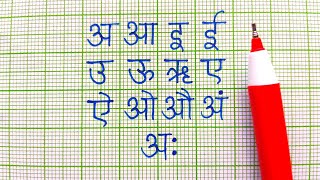 अ आ इ ई
उ ऊ ऋ ए
ऐ ओ औ अं
अः